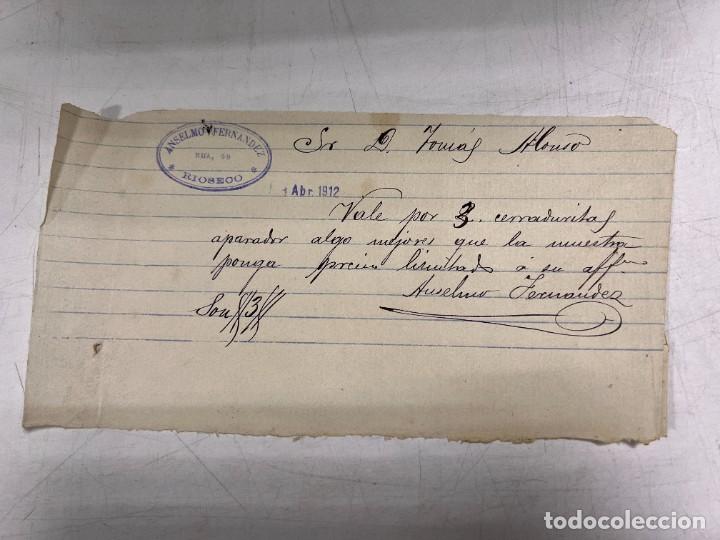 ANSELMO FERNANDEZ
RUA, 49
RIOSECO
Sr D. Tomás Alonso
1 Abr. 1912
Vale por 3. cerraduritas
aparador algo mejores que la muestra
ponga precio limitado á su affmo
Anselmo Fernandez
Son//3//
todocoleccion
todocoleccion.net